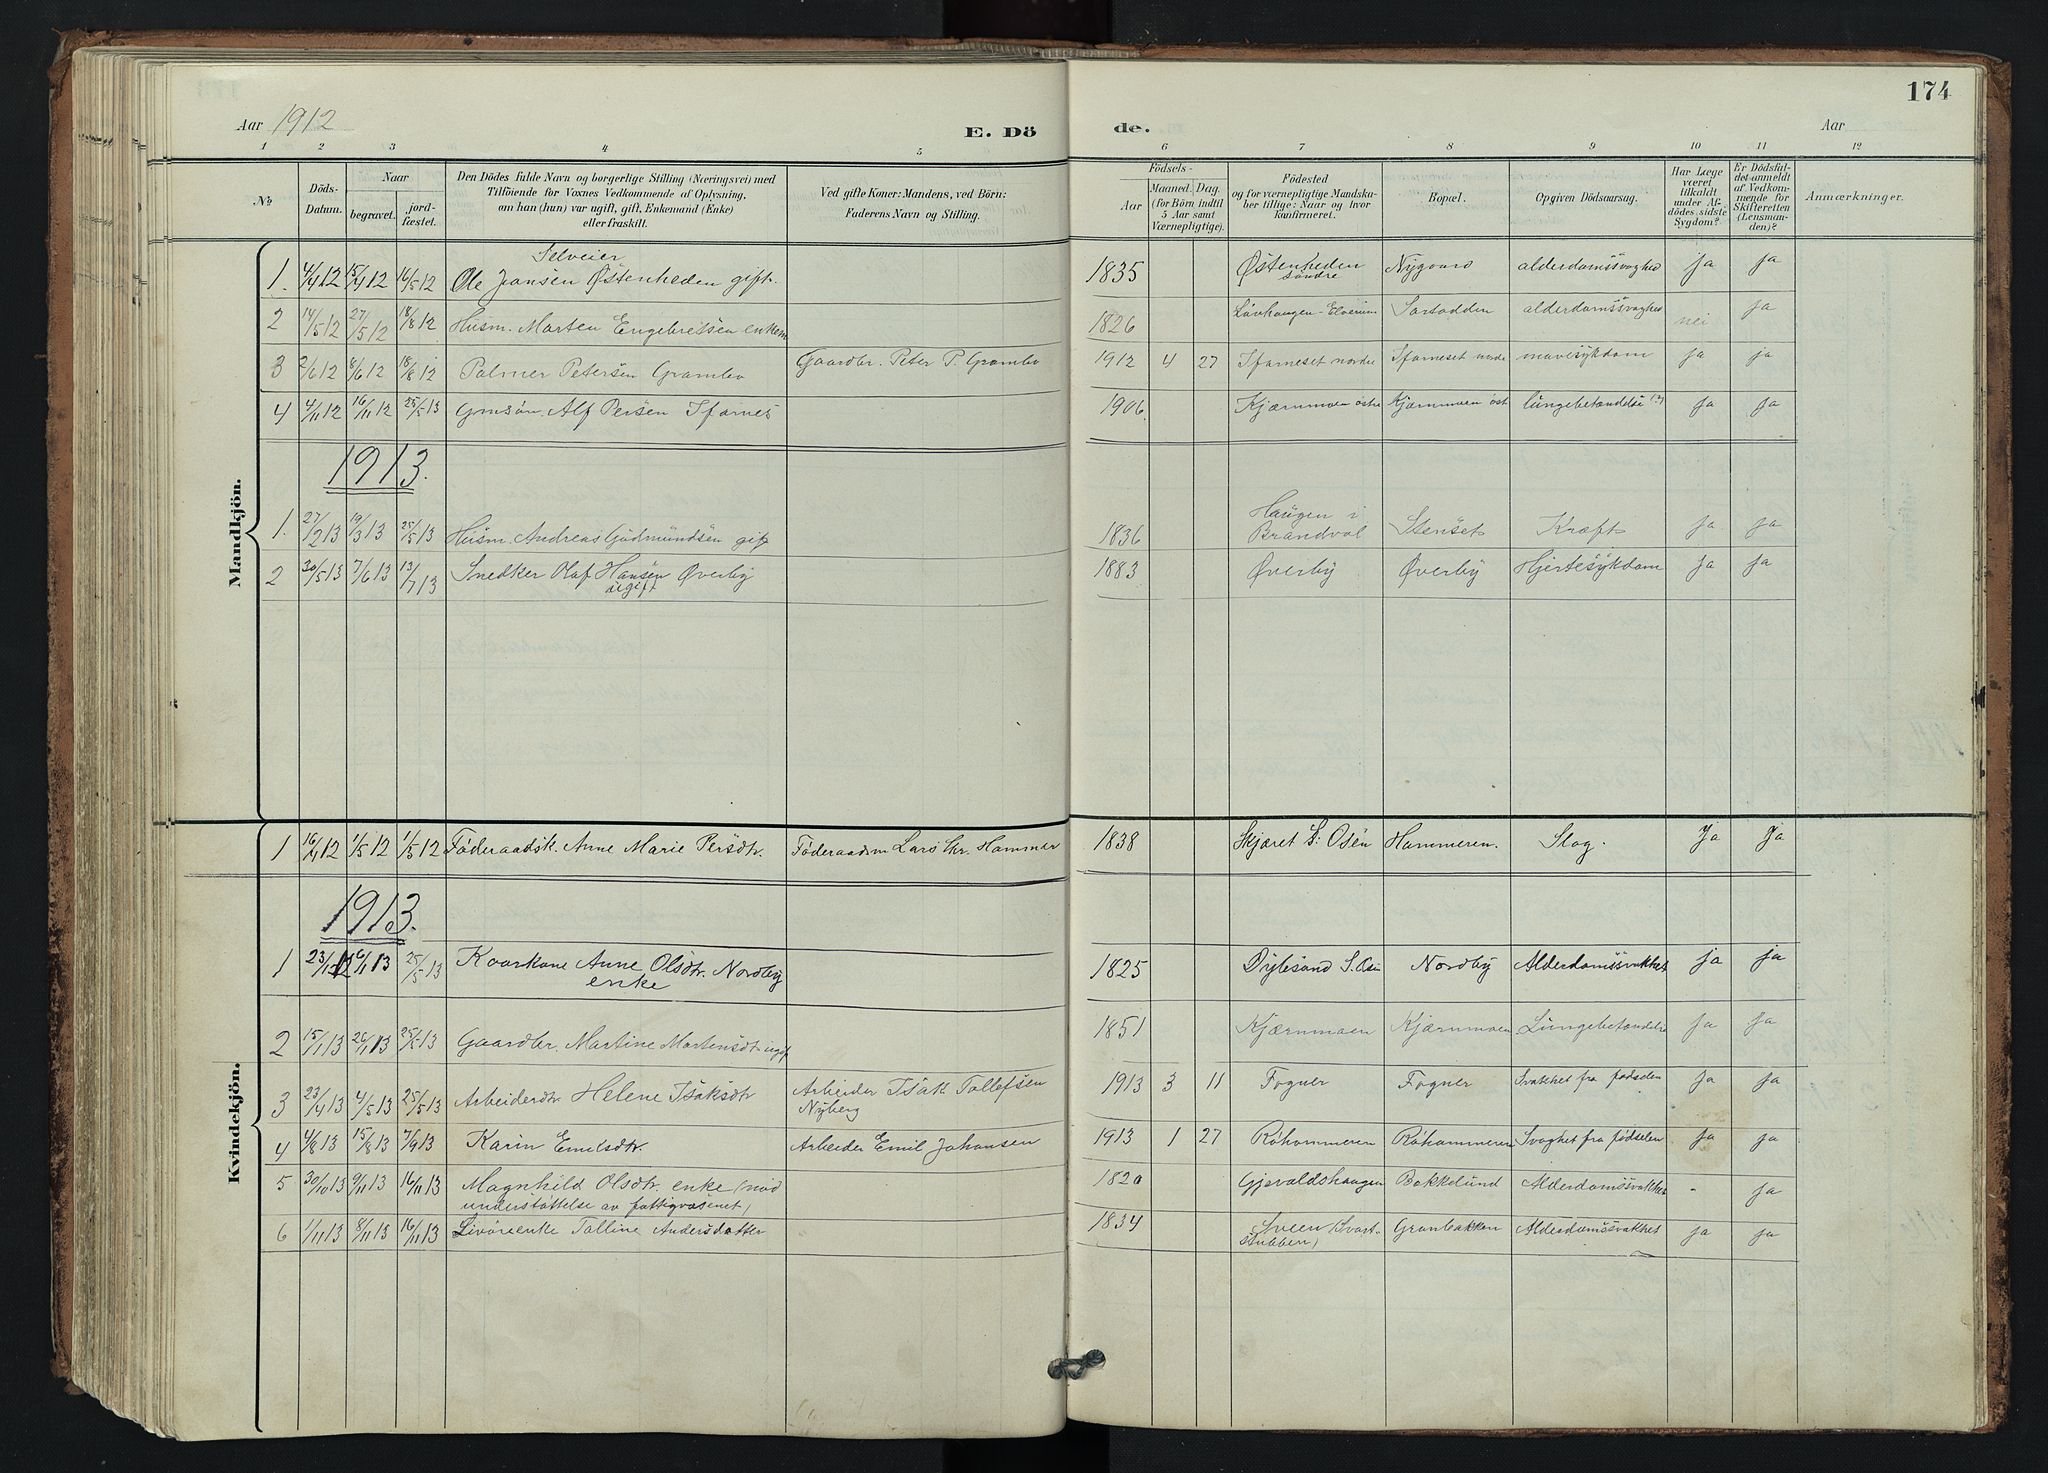 174
Aar 1912
E. Dö
de.
Aar
1 2 3 4 5 6 7 8 9 10 11 12
No
Döds-Datum.
Naar
begravet.
jord-fæstet.
Den Dödes fulde Navn og borgerlige Stilling (Næringsvei) med
Tilföiende for Voxnes Vedkommende af Oplysning,
om han (hun) var ugift, gift, Enkemand (Enke)
eller fraskilt.
Ved gifte Koner: Mandens, ved Börn:
Faderens Navn og Stilling.
Födsels-
Aar
Maaned. Dag.
(for Börn indtil
5 Aar samt
Værnepligtige).
Födested
og for værnepligtige Mandska-
ber tillige: Naar og hvor
konfirmeret.
Bopæl.
Opgiven Dödsaarsag.
Har Læge
været
tilkaldt
under Af-
dödes sidste
Sygdom?
Er Dödsfal-
det anmeldt
af Vedkom-
mende for
Skifteretten
(Lensman-
den)?
Anmærkninger.
Mandkjön.
Selveier
1. 4/4 12 15/4 12 16/5 12 Ole Jansen Østenheden gift. 1835 Østenheden søndre Nygaard alderdomssvaghed Ja Ja
2 14/5 12 27/5 12 18/8 12 Husm. Marten Engebretsen enkem 1826 Løvhaugen - Elverum Sorsodden alderdomssvaghed nei Ja
3 2/6 12 8/6 12 18/8 12 Palmer Petersen Grambo Gaardbr. Peter P. Grambo 1912 4 27 Ifarneset nordre Ifarneset nordre mavesykdom Ja Ja
4 4/11 12 16/11 12 25/5 13 Gmsøn. Alf Persen Ifarnes 1906 Kjærnmoen østre Kjærnmoen øst lungebetændelse (?) Ja Ja
1913.
1. 27/2 13 19/3 13 25/5 13 Husm. Andreas Gudmundsen gift 1836 Haugen i Brandval Stenset Kræft Ja Ja
2 30/5 13 7/6 13 13/7 13 Snedker Olaf Hansen Øverby ugift 1883 Øverby Øverby Hjertesykdom Ja Ja
Kvindekjön.
1 16/4 12 1/5 12 1/5 12 Føderaadsk. Anne Marie Persdtr. Føderaadsm Lars Chr. Hammer 1838 Skjæret S: Osen Hammeren. Slag. Ja Ja
1913.
1 23/12 12 6/1 13 25/5 13 Kaarkone Anne Olsdtr. Nordby enke 1825 Dylesand S. Osen Nordby Alderdomssvakhet Ja Ja
2 15/1 13 26/1 13 25/5 13 Gaardbr. Martine Martensdtr ugift 1851 Kjærnmoen Kjærnmoen Lungebetændelse Ja Ja
3 23/4 13 4/5 13 25/5 13 Arbeiderdtr. Helene Isaksdtr Arbeider Isak Tollefsen Nyberg 1913 3 11 Fogner Fogner Svakhet fra fødselen Ja Ja
4 4/8 13 15/8 13 7/9 13 Karin Emilsdtr. Arbeider Emil Johansen 1913 1 27 Røhammeren Røhammeren Svaghet fra fødselen Ja Ja
5 30/10 13 9/11 13 16/11 13 Magnhild Olsdtr. enke (nød understøttelse av fattigvæsenet) 1820 Gjevaldshaugen Bakkelund Alderdomssvakhet - Ja
6 1/11 13 8/11 13 16/11 13 Livøreenke Talline Andersdatter 1834 Sveen (Svartstubben) Granbakken Alderdomssvakhet Ja Ja